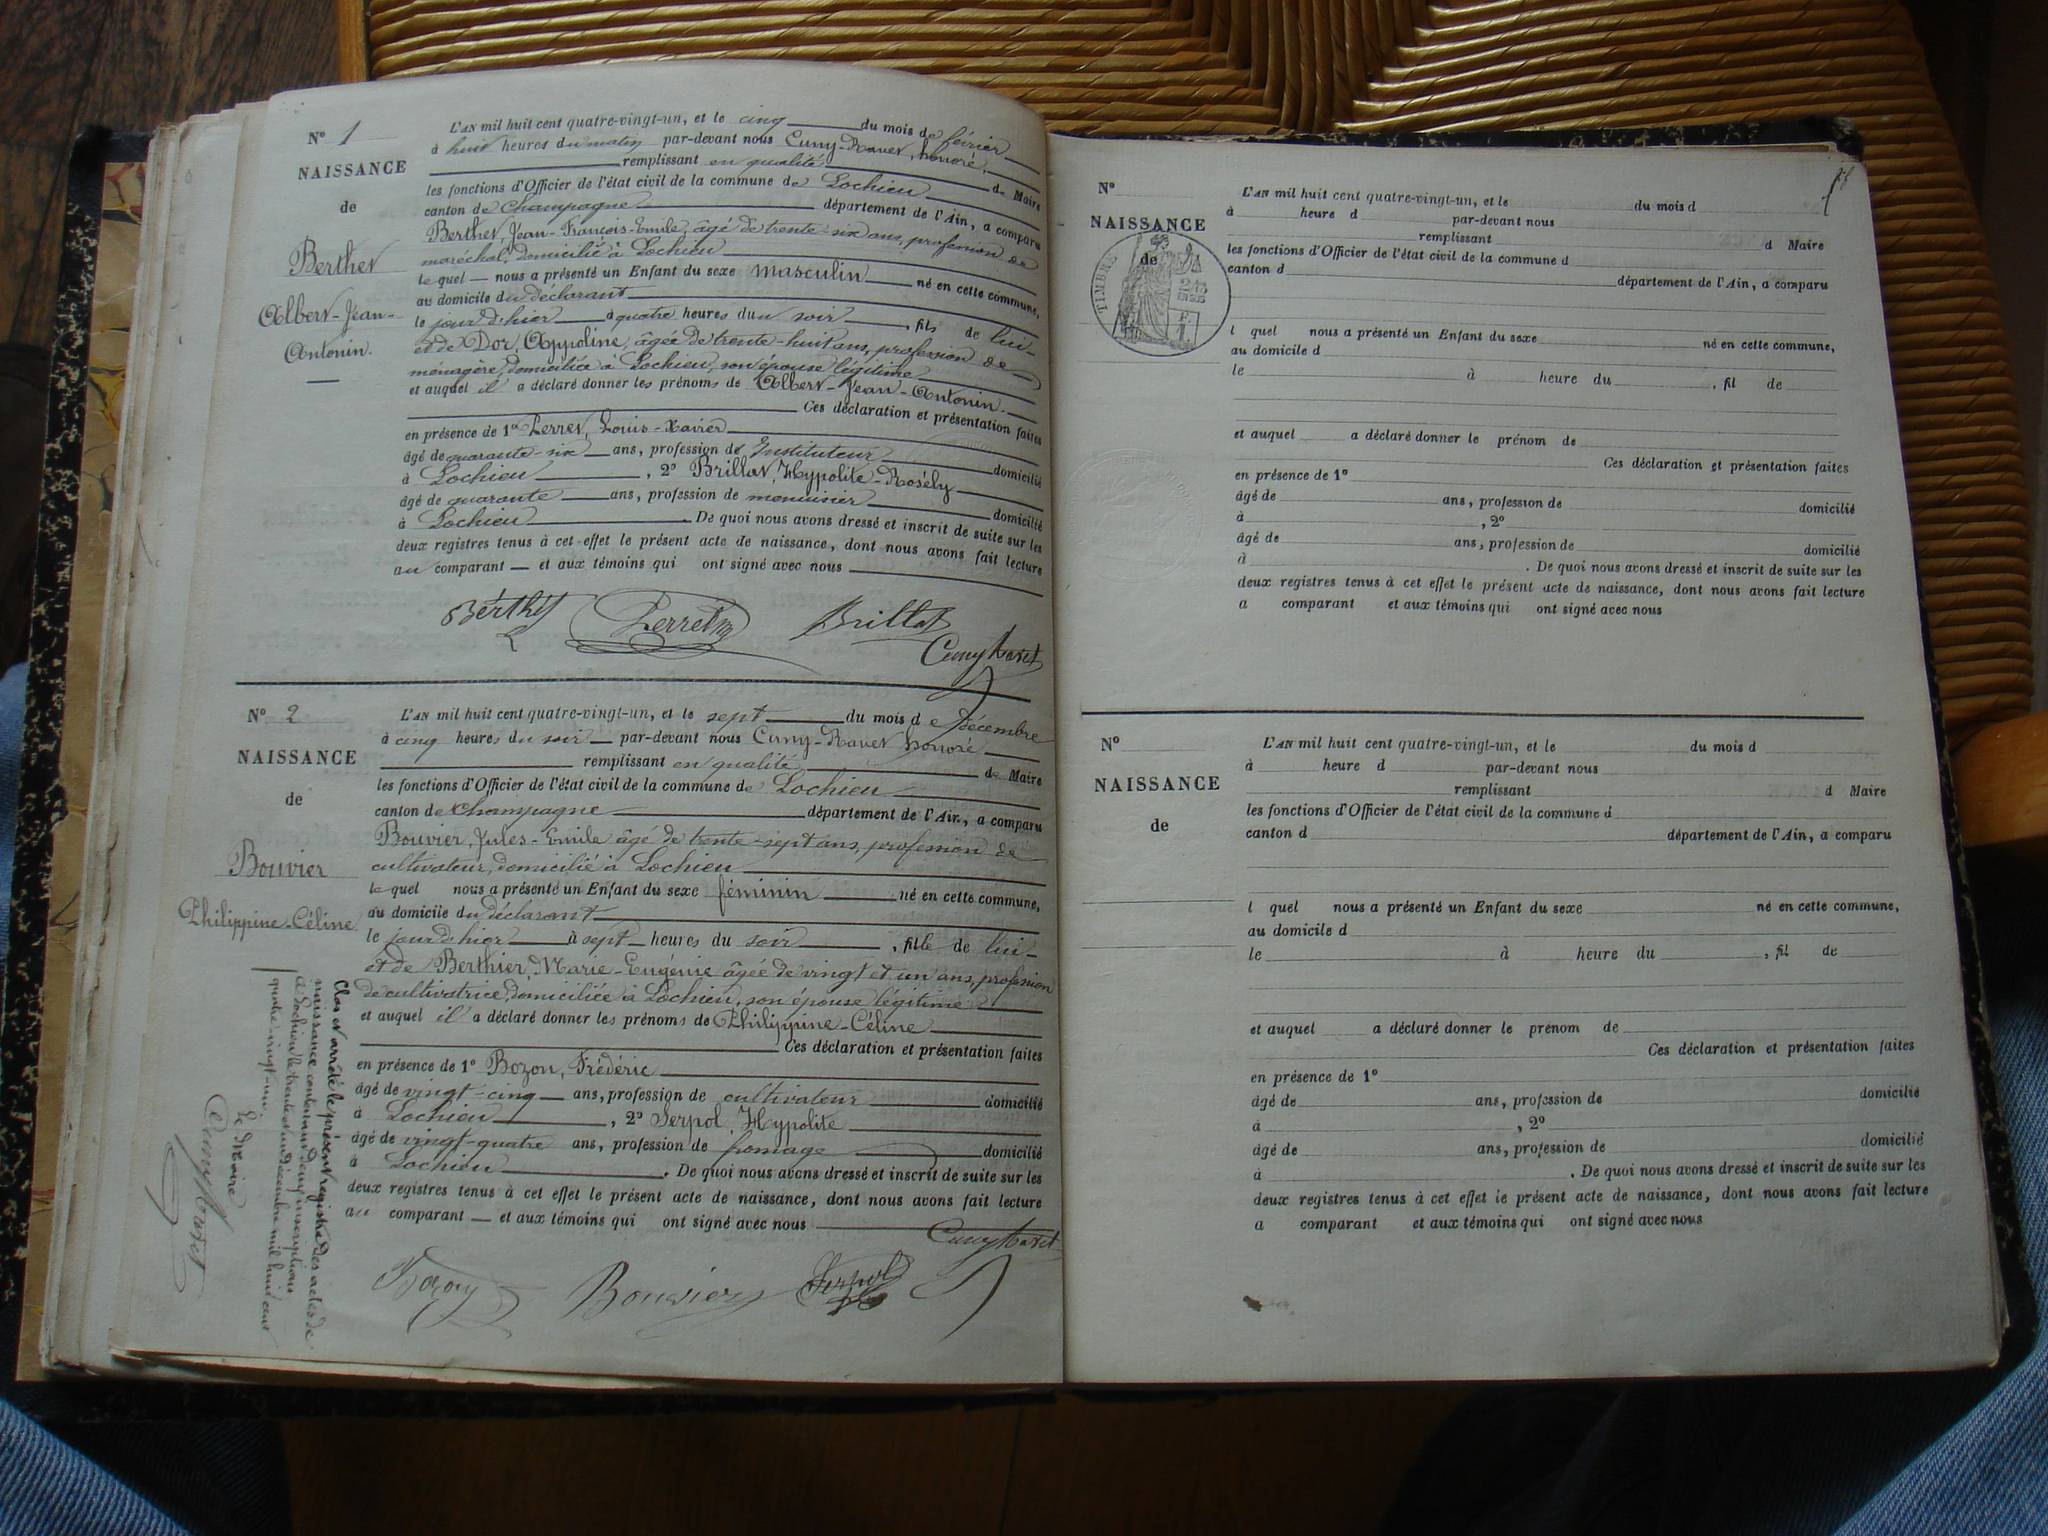 N° 1
NAISSANCE
de
Berthet
Albert-Jean-
Antonin.
L'AN mil huit cent quatre-vingt-un, et le cinq du mois de février
à huit heures du matin par-devant nous Cuny-Ravet, honoré,
remplissant en qualité de Maire
les fonctions d'Officier de l'état civil de la commune de Lochieu
canton de Champagne département de l'Ain, a comparu
Berthet Jean-François-Emile, âgé de trente-six ans, profession de
maréchal, domicilié à Lochieu
le quel nous a présenté un Enfant du sexe masculin né en cette commune,
au domicile du déclarant
le jour d'hier à quatre heures du soir, fils de lui
et de Dor, Appoline, âgée de trente-huit ans, profession de
ménagère, domiciliée à Lochieu, son épouse légitime
et auquel il a déclaré donner les prénoms de Albert-Jean-Antonin.
Ces déclaration et présentation faites
en présence de 1° Perret, Louis-Xavier
âgé de quarante-six ans, profession de Instituteur domicilié
à Lochieu, 2° Brillat, Hypolite-Rosély
âgé de quarante ans, profession de menuisier domicilié
à Lochieu. De quoi nous avons dressé et inscrit de suite sur les
deux registres tenus à cet effet le présent acte de naissance, dont nous avons fait lecture
au comparant et aux témoins qui ont signé avec nous
Berthet Perret Brillat
Cuny Ravet
N° 2
NAISSANCE
de
Bouvier
Philippine-Céline
L'AN mil huit cent quatre-vingt-un, et le sept du mois de Décembre
à cinq heures du soir par-devant nous Cuny-Ravet honoré
remplissant en qualité de Maire
les fonctions d'Officier de l'état civil de la commune de Lochieu
canton de Champagne département de l'Ain, a comparu
Bouvier, Jules-Emile âgé de trente-sept ans, profession de
cultivateur, domicilié à Lochieu
le quel nous a présenté un Enfant du sexe féminin né en cette commune,
au domicile du déclarant
le jour d'hier à sept heures du soir, fille de lui
et de Berthier, Marie-Eugénie âgée de vingt et un ans, profession
de cultivatrice, domiciliée à Lochieu, son épouse légitime
et auquel il a déclaré donner les prénoms de Philippine-Céline
Ces déclaration et présentation faites
en présence de 1° Bozon, Frédéric
âgé de vingt-cinq ans, profession de cultivateur domicilié
à Lochieu, 2° Serpol, Hypolite
âgé de vingt-quatre ans, profession de fromage domicilié
à Lochieu. De quoi nous avons dressé et inscrit de suite sur les
deux registres tenus à cet effet le présent acte de naissance, dont nous avons fait lecture
au comparant et aux témoins qui ont signé avec nous
Cuny Ravet
Bozon Bouvier Serpol
Clos et arrêté le présent registre des actes de
naissance contenant deux inscriptions
à Lochieu le trente et un décembre mil huit cent
quatre-vingt-un.
Le Maire
Cuny Ravet
N°
NAISSANCE
de
TIMBRE
L'AN mil huit cent quatre-vingt-un, et le du mois d
à heure d par-devant nous
remplissant d Maire
les fonctions d'Officier de l'état civil de la commune d
canton d
département de l'Ain, a comparu
l quel nous a présenté un Enfant du sexe né en cette commune,
au domicile d
le à heure du , fil de
et auquel a déclaré donner le prénom de
Ces déclaration et présentation faites
en présence de 1°
âgé de ans, profession de domicilié
à , 2°
âgé de ans, profession de domicilié
à . De quoi nous avons dressé et inscrit de suite sur les
deux registres tenus à cet effet le présent acte de naissance, dont nous avons fait lecture
a comparant et aux témoins qui ont signé avec nous
N°
NAISSANCE
de
L'AN mil huit cent quatre-vingt-un, et le du mois d
à heure d par-devant nous
remplissant d Maire
les fonctions d'Officier de l'état civil de la commune d
canton d département de l'Ain, a comparu
l quel nous a présenté un Enfant du sexe né en cette commune,
au domicile d
le à heure du , fil de
et auquel a déclaré donner le prénom de
Ces déclaration et présentation faites
en présence de 1°
âgé de ans, profession de domicilié
à , 2°
âgé de ans, profession de domicilié
à . De quoi nous avons dressé et inscrit de suite sur les
deux registres tenus à cet effet le présent acte de naissance, dont nous avons fait lecture
a comparant et aux témoins qui ont signé avec nous